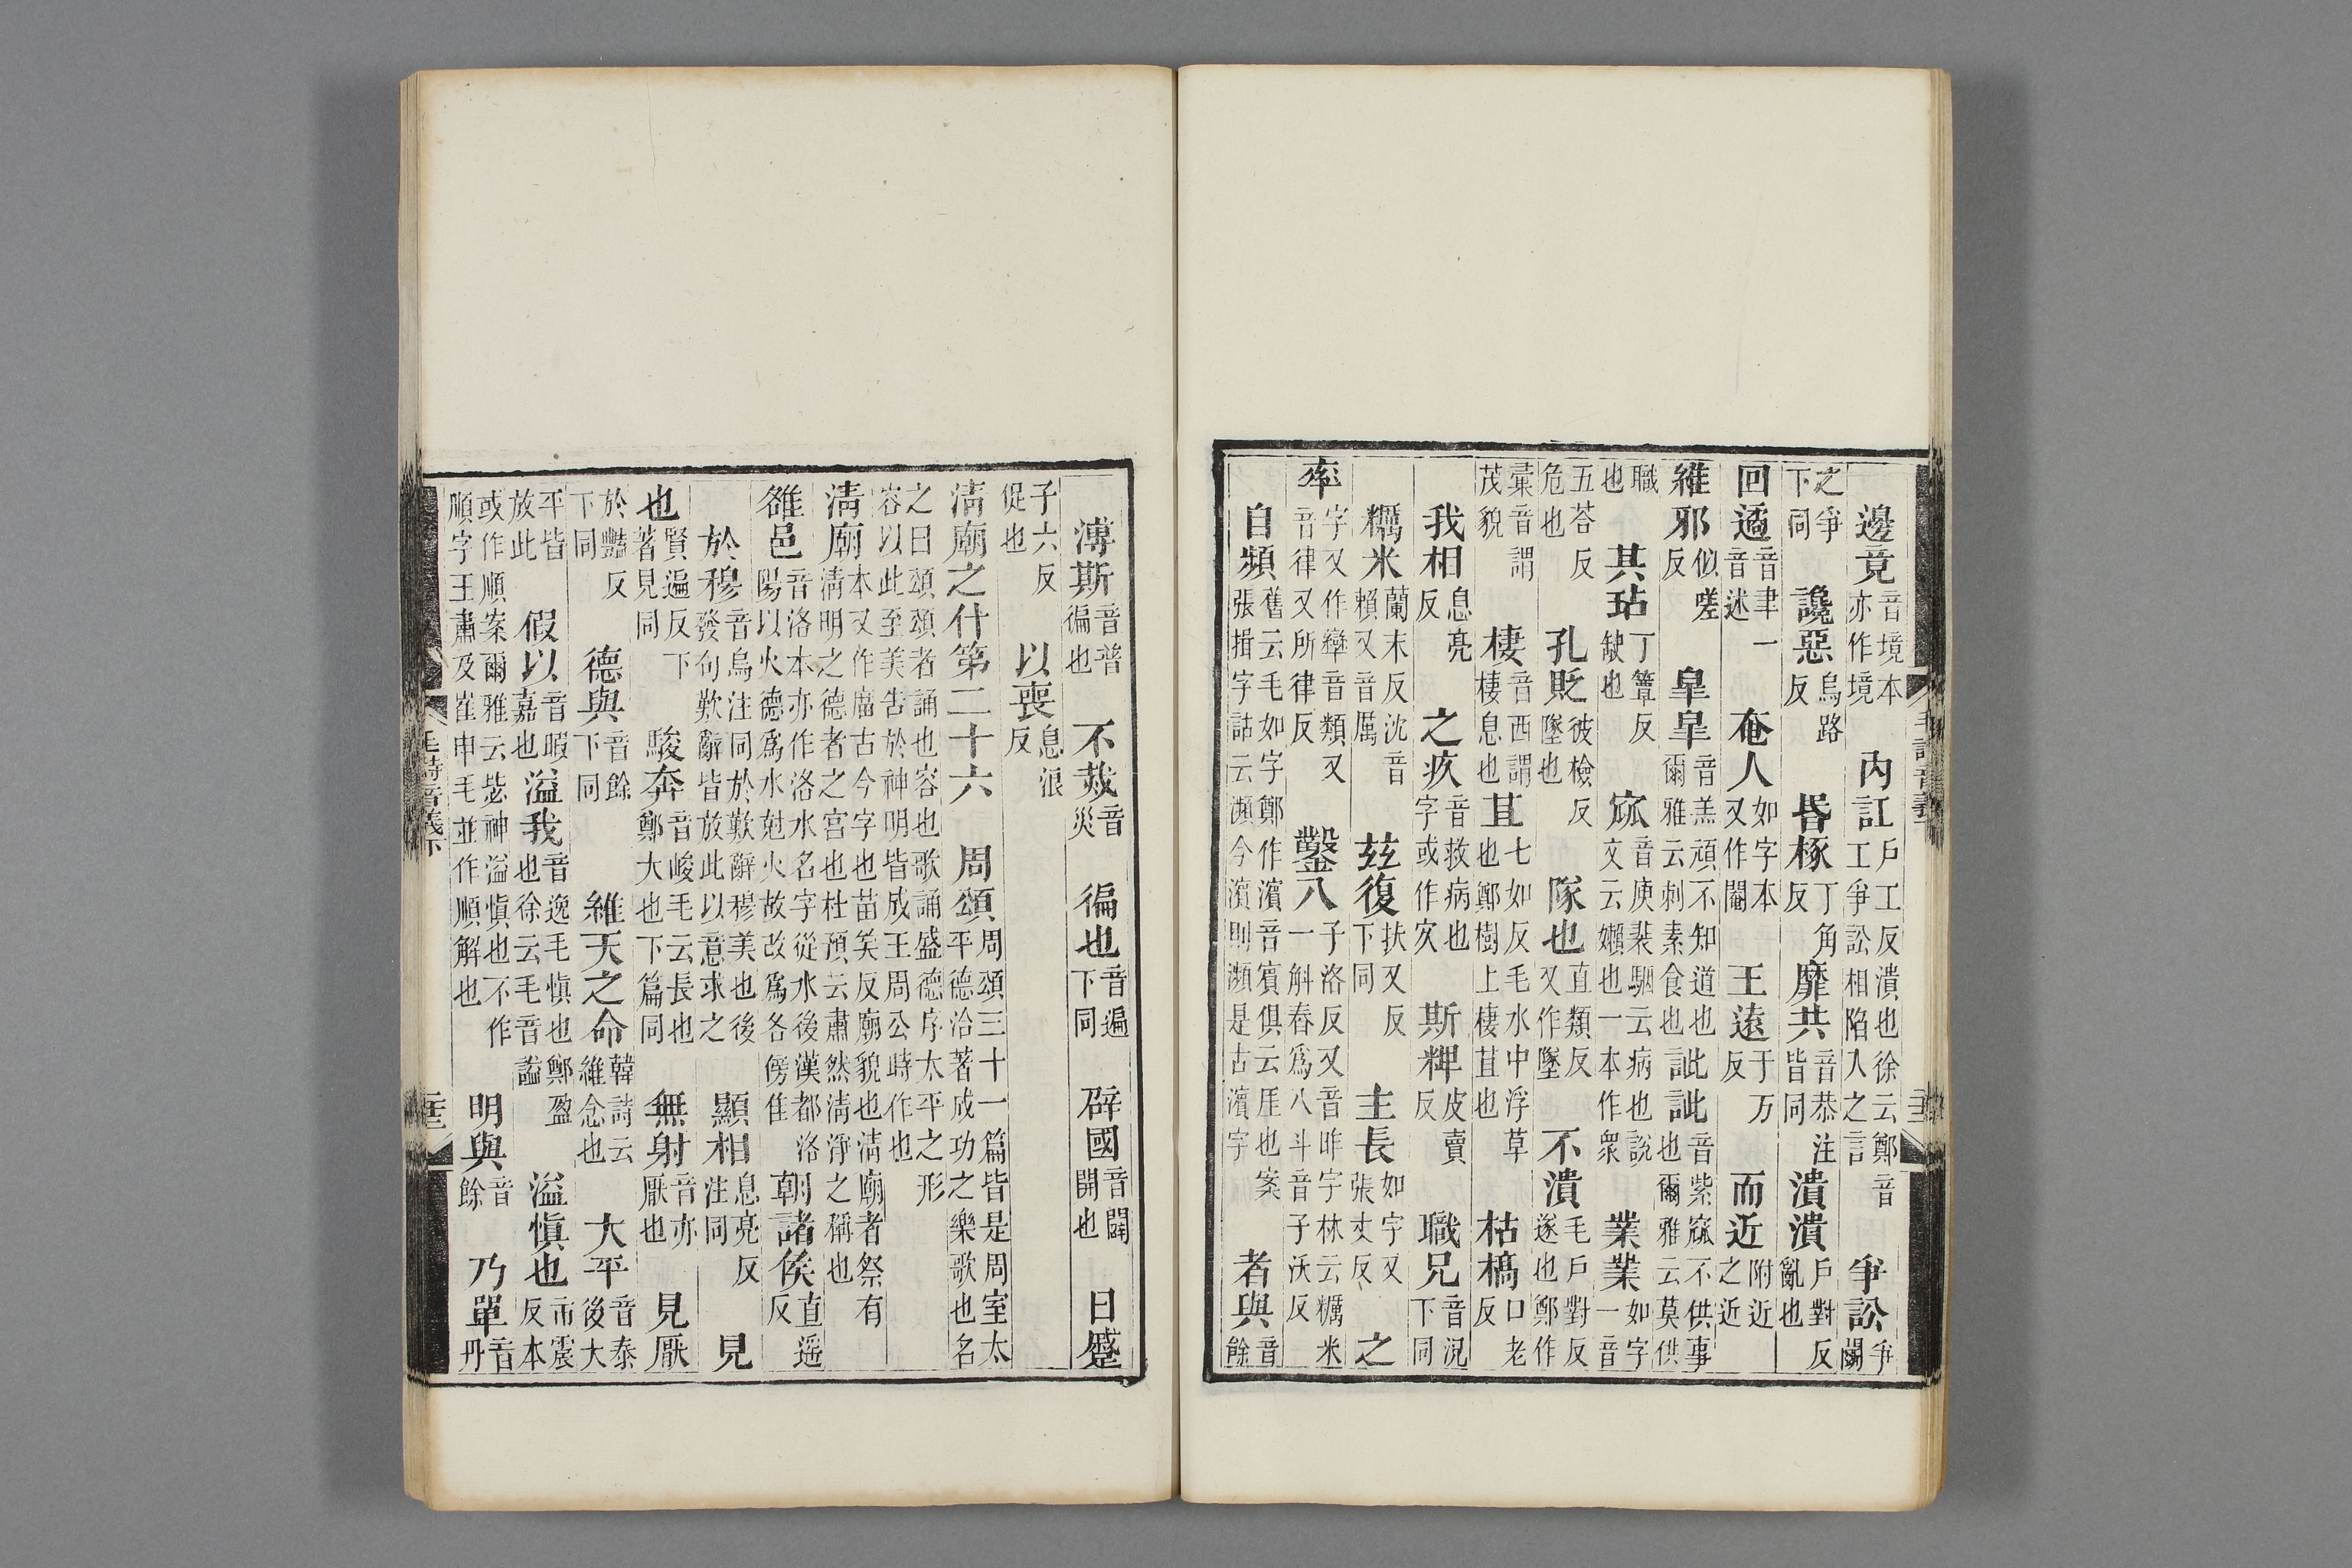 邊竟音境本亦作境 內訌戶工反潰也徐云鄭音工爭訟相陷入之言 爭訟爭鬬
之爭下同 讒惡烏路反 昬椓丁角反 靡共音恭注皆同 潰潰戶對反亂也
回遹音聿一音述 奄人如字本又作閹 王遠于万反 而近附近之近
維邪似嗟反 臯臯音羔頑不知道也爾雅云刺素食也 訿訿音紫窳不供事也爾雅云莫供
職也 其玷丁簟反缺也 窳音庾裴駰云病也說文云嬾也一本作衆 業業如字一音
五荅反危也 孔貶彼檢反墜也 隊也直類反又作墜 不潰毛戶對反遂也鄭作
彙音謂茂貌 棲音西謂棲息也 苴七如反毛水中浮草也鄭樹上棲苴也 枯槁口老反
我相息亮反 之疚音救病也字或作㝌 斯粺皮賣反 職兄音況下同
糲米蘭末反沈音賴又音厲 兹復扶又反下同 主長如字又張丈反 之
率字又作䢦音類又音律又所律反 鑿八子洛反又音昨字林云糲米一斛舂爲八斗音子沃反
自頻舊云毛如字鄭作濱音賓俱云厓也案張揖字詁云瀕今濱則瀕是古濱字 者與音餘
溥斯音普徧也 不烖音災 徧也音遍下同 辟國音闢開也 日蹙
子六反促也 以喪息浪反
淸廟之什第二十六 周頌周頌三十一篇皆是周室太平德洽著成功之樂歌也名
之曰頌頌者誦也容也歌誦盛德序太平之形容以此至美告於神明皆成王周公時作也
淸廟本又作庿古今字也苗笑反廟貌也淸廟者祭有淸明之德者之宮也杜預云肅然淸淨之稱也
雒邑音洛本亦作洛水名字從水後漢都洛陽以火德爲水尅火故改爲各傍隹 朝諸侯直遥反
於穆音烏注同於歎辭穆美也後發句歎辭皆放此以意求之 顯相息亮反注同 見
也賢遍反下著見同 駿奔音峻毛云長也鄭大也下篇同 無射音亦厭也 見厭
於豔反下同 德與音餘下同 維天之命韓詩云維念也 大平音泰後大
平皆放此 假以音暇嘉也 溢我音逸毛慎也鄭盈也徐云毛音謚 溢慎也市震反本
或作順案爾雅云毖神溢慎也不作順字王肅及崔申毛並作順解也 明與音餘 乃單音丹